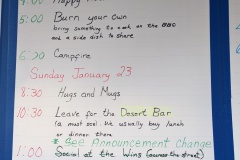 4:00 Happy
5:00 Burn your own
bring something to cook on the BBQ
and a side dish to share
6:00 Campfire
Sunday January 23
8:30 Hugs and Mugs
10:30 Leave for the Desert Bar
(a must see) We usually buy lunch
or dinner there
* See Announcement Change
1:00 Social at the Wins (across the street)